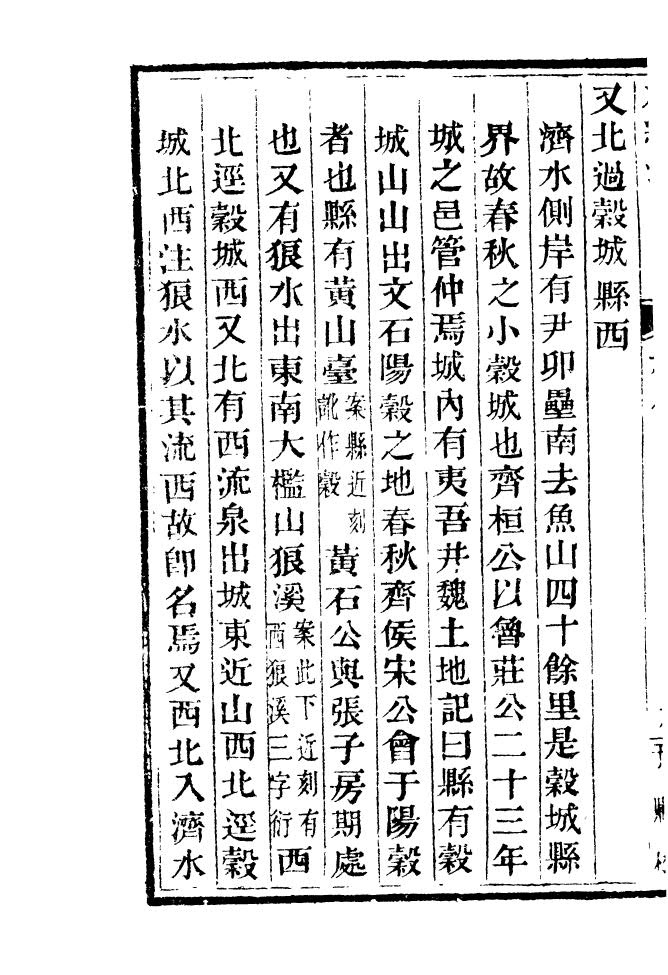 又北過穀城縣西
濟水側岸有尹卯壘南去魚山四十餘里是穀城縣
界故春秋之小穀城也齊桓公以魯莊公二十三年
城之邑管仲焉城內有夷吾井魏土地記曰縣有穀
城山山出文石陽穀之地春秋齊侯宋公會于陽穀
者也縣有黃山臺案縣近刻訛作穀黃石公與張子房期處
也又有狼水出東南大檻山狼溪案此下近刻有西狼溪三字衍西
北逕穀城西又北有西流泉出城東近山西北逕穀
城北西注狼水以其流西故卽名焉又西北入濟水